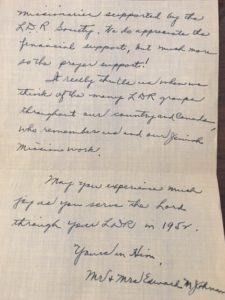 missionaries supported by the
L.D.R. Society. We do appreciate the
financial support, but much more
so the prayer support!
It really thrills us when we
think of the many LDR groups
throughout our country and Canada,
who remember us and our Jewish
Mission work.
May you experience much
joy as you serve the Lord
through your LDR in 1952.
Yours in Him,
Mr. & Mrs. Edward M. Johnson